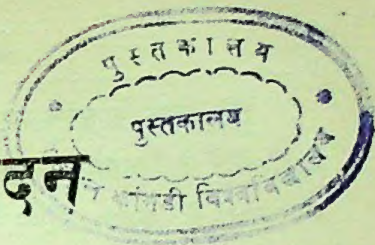 पुस्तकालय
पुस्तकालय
दन
कांगडी विश्वविद्यालय